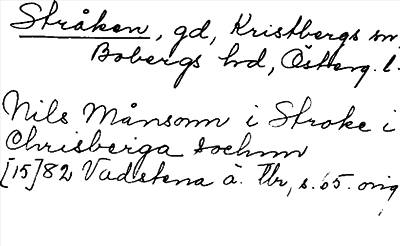 Stråken, gd, Kristbergs sn,
Bobergs hd, Österg. l.
Nils Månsonn i Stroke i
Chrisberga sochnn
[15]82 Vadstena ä. Tbr, s. 65. orig